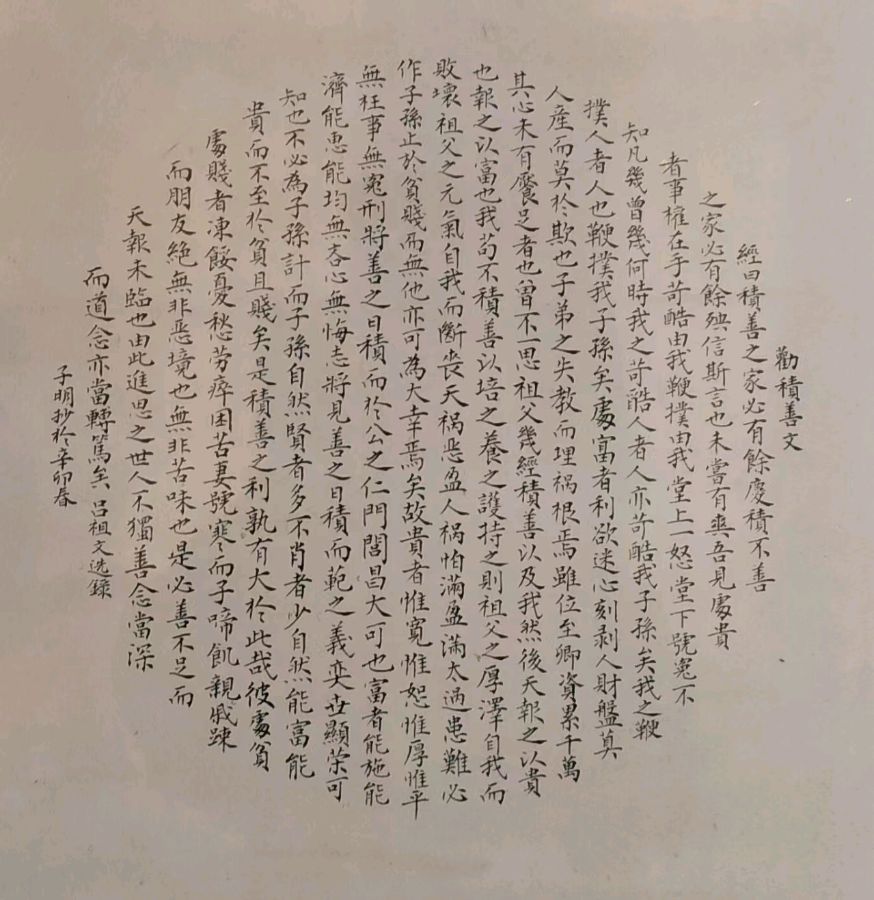 勸積善文
經曰積善之家必有餘慶積不善
之家必有餘殃信斯言也未嘗有爽吾見處貴
者事權在手苛酷由我鞭撲由我堂上一怒堂下號冤不
知凡幾曾幾何時我之苛酷人者人亦苛酷我子孫矣我之鞭
撲人者人也鞭撲我子孫矣處富者利欲迷心刻剥人財盤算
人産而莫於欺也子弟之失教而埋禍根焉雖位至卿資累千萬
其心未有饜足者也曾不一思祖父幾經積善以及我然後天報之以貴
也報之以富也我苟不積善以培之養之護持之則祖父之厚澤自我而
敗壞祖父之元氣自我而斷喪天禍恶盈人禍怕滿盈滿太過患難必
作子孫止於貧賤而無他亦可為大幸焉矣故貴者惟寬惟恕惟厚惟平
無枉事無冤刑將善之日積而於公之仁門閭昌大可也富者能施能
濟能恵能均無吝心無悔志將見善之日積而範之義奕世顯荣可
知也不必為子孫計而子孫自然賢者多不肖者少自然能富能
貴而不至於貧且賤矣是積善之利孰有大於此哉彼處貧
處賤者凍餒憂愁劳瘁困苦妻號寒而子啼飢親戚踈
而朋友絕無非恶境也無非苦味也是必善不足而
天報未臨也由此進思之世人不獨善念當深
而道念亦當轉篤矣 吕祖文选録
子明抄於辛卯春